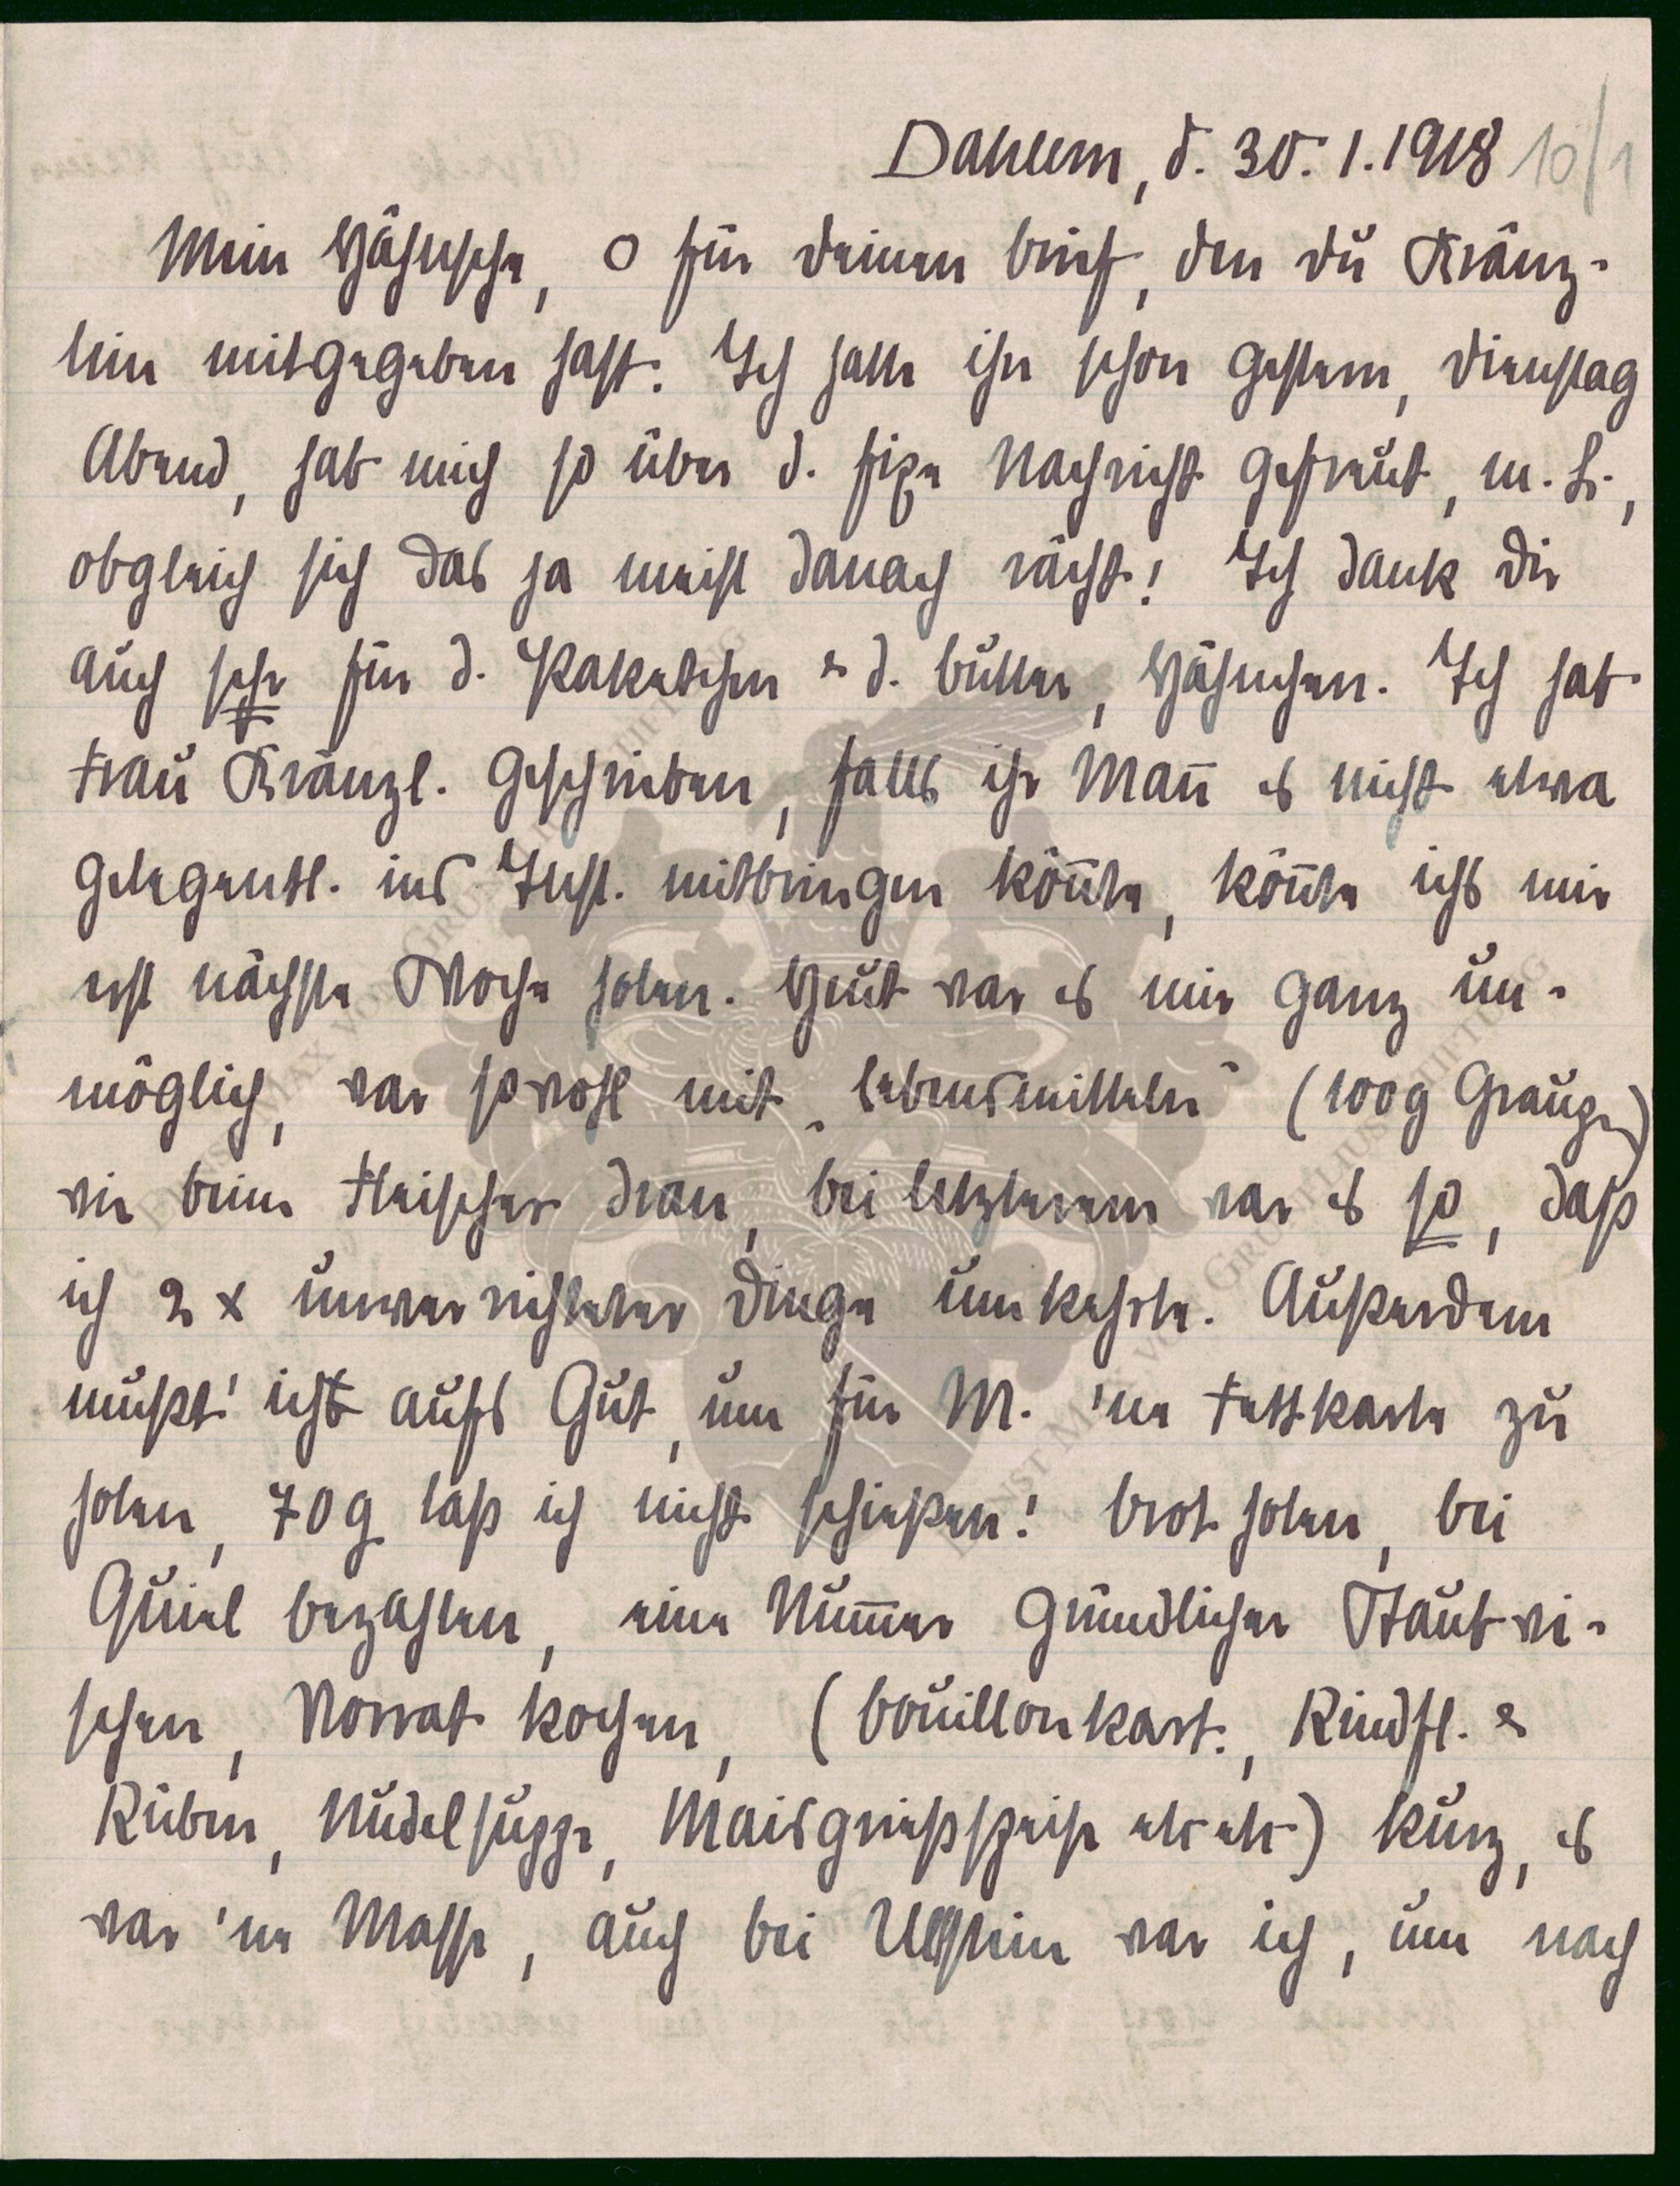 Dahlem, d. 30. 1. 1918 10/1
Mein Häschsche, o für deinen Brief, den du Kränz-
lin mitgegeben hast. Ich hatte ihn schon gestern, Dienstag
Abend, hab mich so über d. fixe Nachricht gefreut, m. H.,
obgleich sich das ja meist danach rächt! Ich dank dir
auch sehr für d. Paketchen & d. Butter, Häschen. Ich hab
Frau Kränzl. geschrieben, falls ihr Man̄ es nicht etwa
gelegentl. ins Inst. mitbringen kön̄te, kön̄te ichs mir
erst nächste Woche holen. Heut war es mir ganz un-
möglich, war sowohl mit „Lebensmitteln“ (100g Graupen)
wie beim Fleischer dran, bei letzterem war es so, daß
ich 2 x unverrichteter Dinge umkehrte. Außerdem
mußt' ich aufs Gut, um für M. 'ne Fettkarte zu
holen, 70g laß ich nicht schießen! Brot holen, bei
Quiel bezahlen, eine Num̄er gründlicher Staubwi-
schen, Vorrat kochen, (Bouillonkart., Rindfl. &
Rüben, Nudelsuppe, Maisgrießspeise etc etc) kurz, es
war 'ne Masse, auch bei Ullstein war ich, um nach
ERNST MAX VON GRÜTZELIUS STIFTUNG